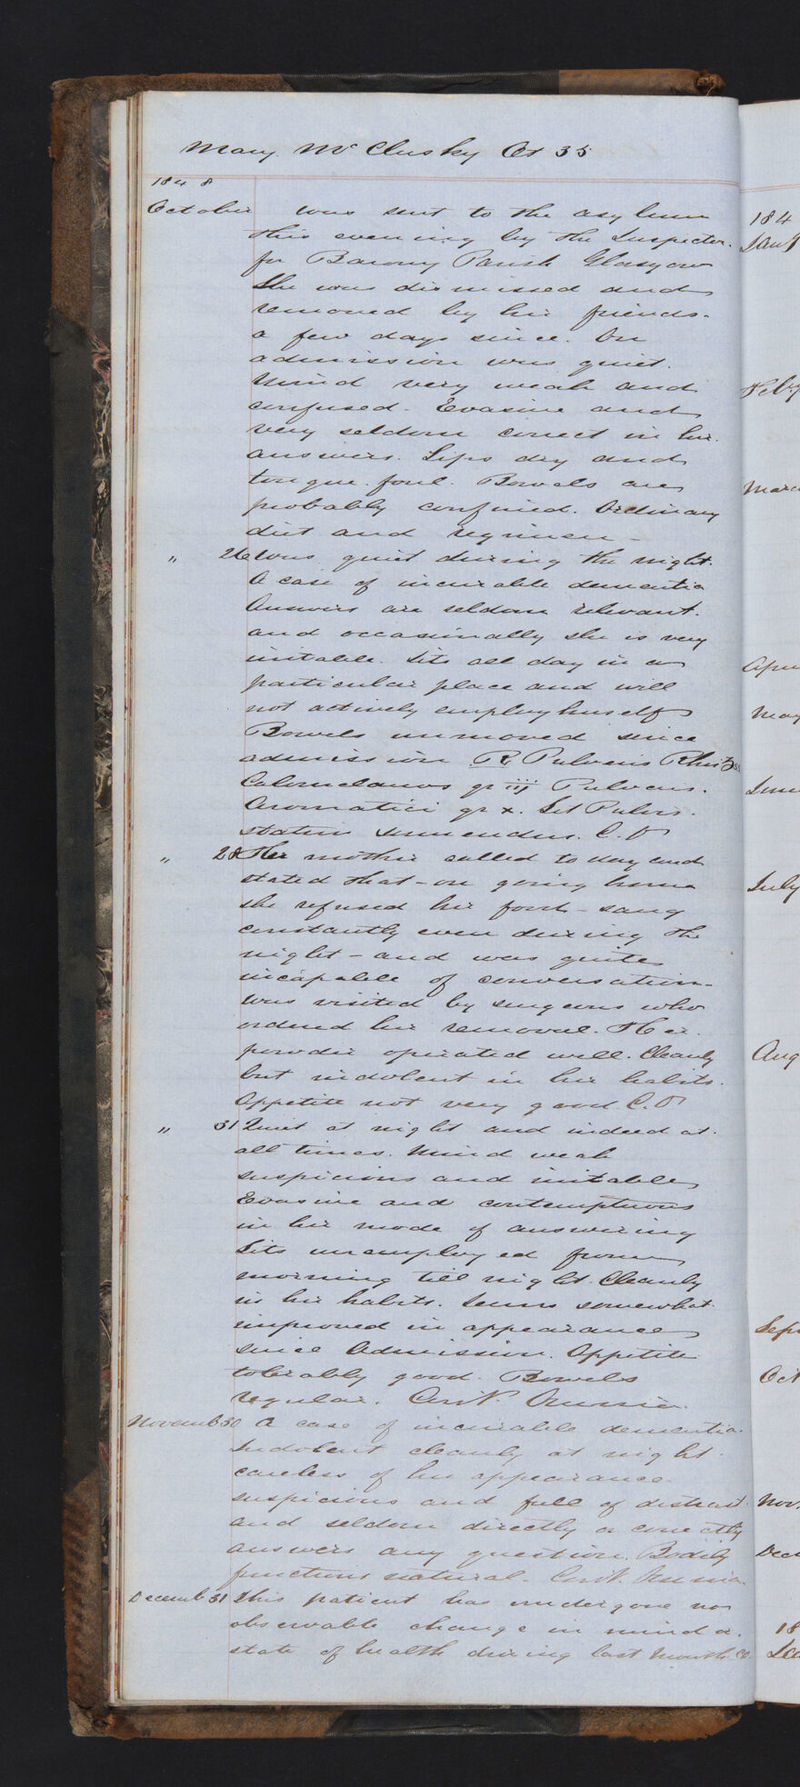 Mary McClusky Æt 35
1848
October was sent to the asylum
this evening by the Inspector
for Barony Parish Glasgow
She was dismissed and
removed by her friends
a few days since. On
admission was quiet.
Mind very weak and
confused. Evasive and
very seldom correct in her
answers. Lips dry and
tongue foul. Bowels are
probably confined. Ordinary
diet and regimen –
" 26 Was quiet during the night.
A case of incurable dementia
Answers are seldom relevant.
and occasionally she is very
irritable. Sits all day in a
particular place and will
not actively employ herself
Bowels unmoved since
admission ℞ Pulveris Rhei
Calomelanos gr iij Pulveris.
Aromatici gr x. Sit Pulvis.
statim sumendus. C.O
" 28 Her mother called to day and
stated that – on going home
she refused her food – sang
constantly even during the
night – and was quite
incapable of conversation –
was visited by surgeons who
ordered her removal. Her
powder operated well. Cleanly
but indolent in her habits.
Appetite not very good C.O
" 31 Quiet at night and indeed at
all times. Mind weak
suspicious and irritable
Evasive and contemptuous
in her mode of answering
Sits unemployed from
morning till night. Cleanly
in her habits. Seems somewhat
improved in appearance
since Admission. Appetite
tolerably good. Bowels
regular. Contr Omnia.
Novemb 30 A case of incurable dementia.
Indolent cleanly at night
careless of her appearance
suspicious and full of distrust
and seldom directly or correctly
answers any question. Bodily
functions natural. Cont. Omnia
Decemb 31 This patient has undergone no
observable change in mind or
state of health during last month Co
184
Jany
Feby
March
Apri
May
June
July
Aug
Sep
Oct
Nov.
Dec
18